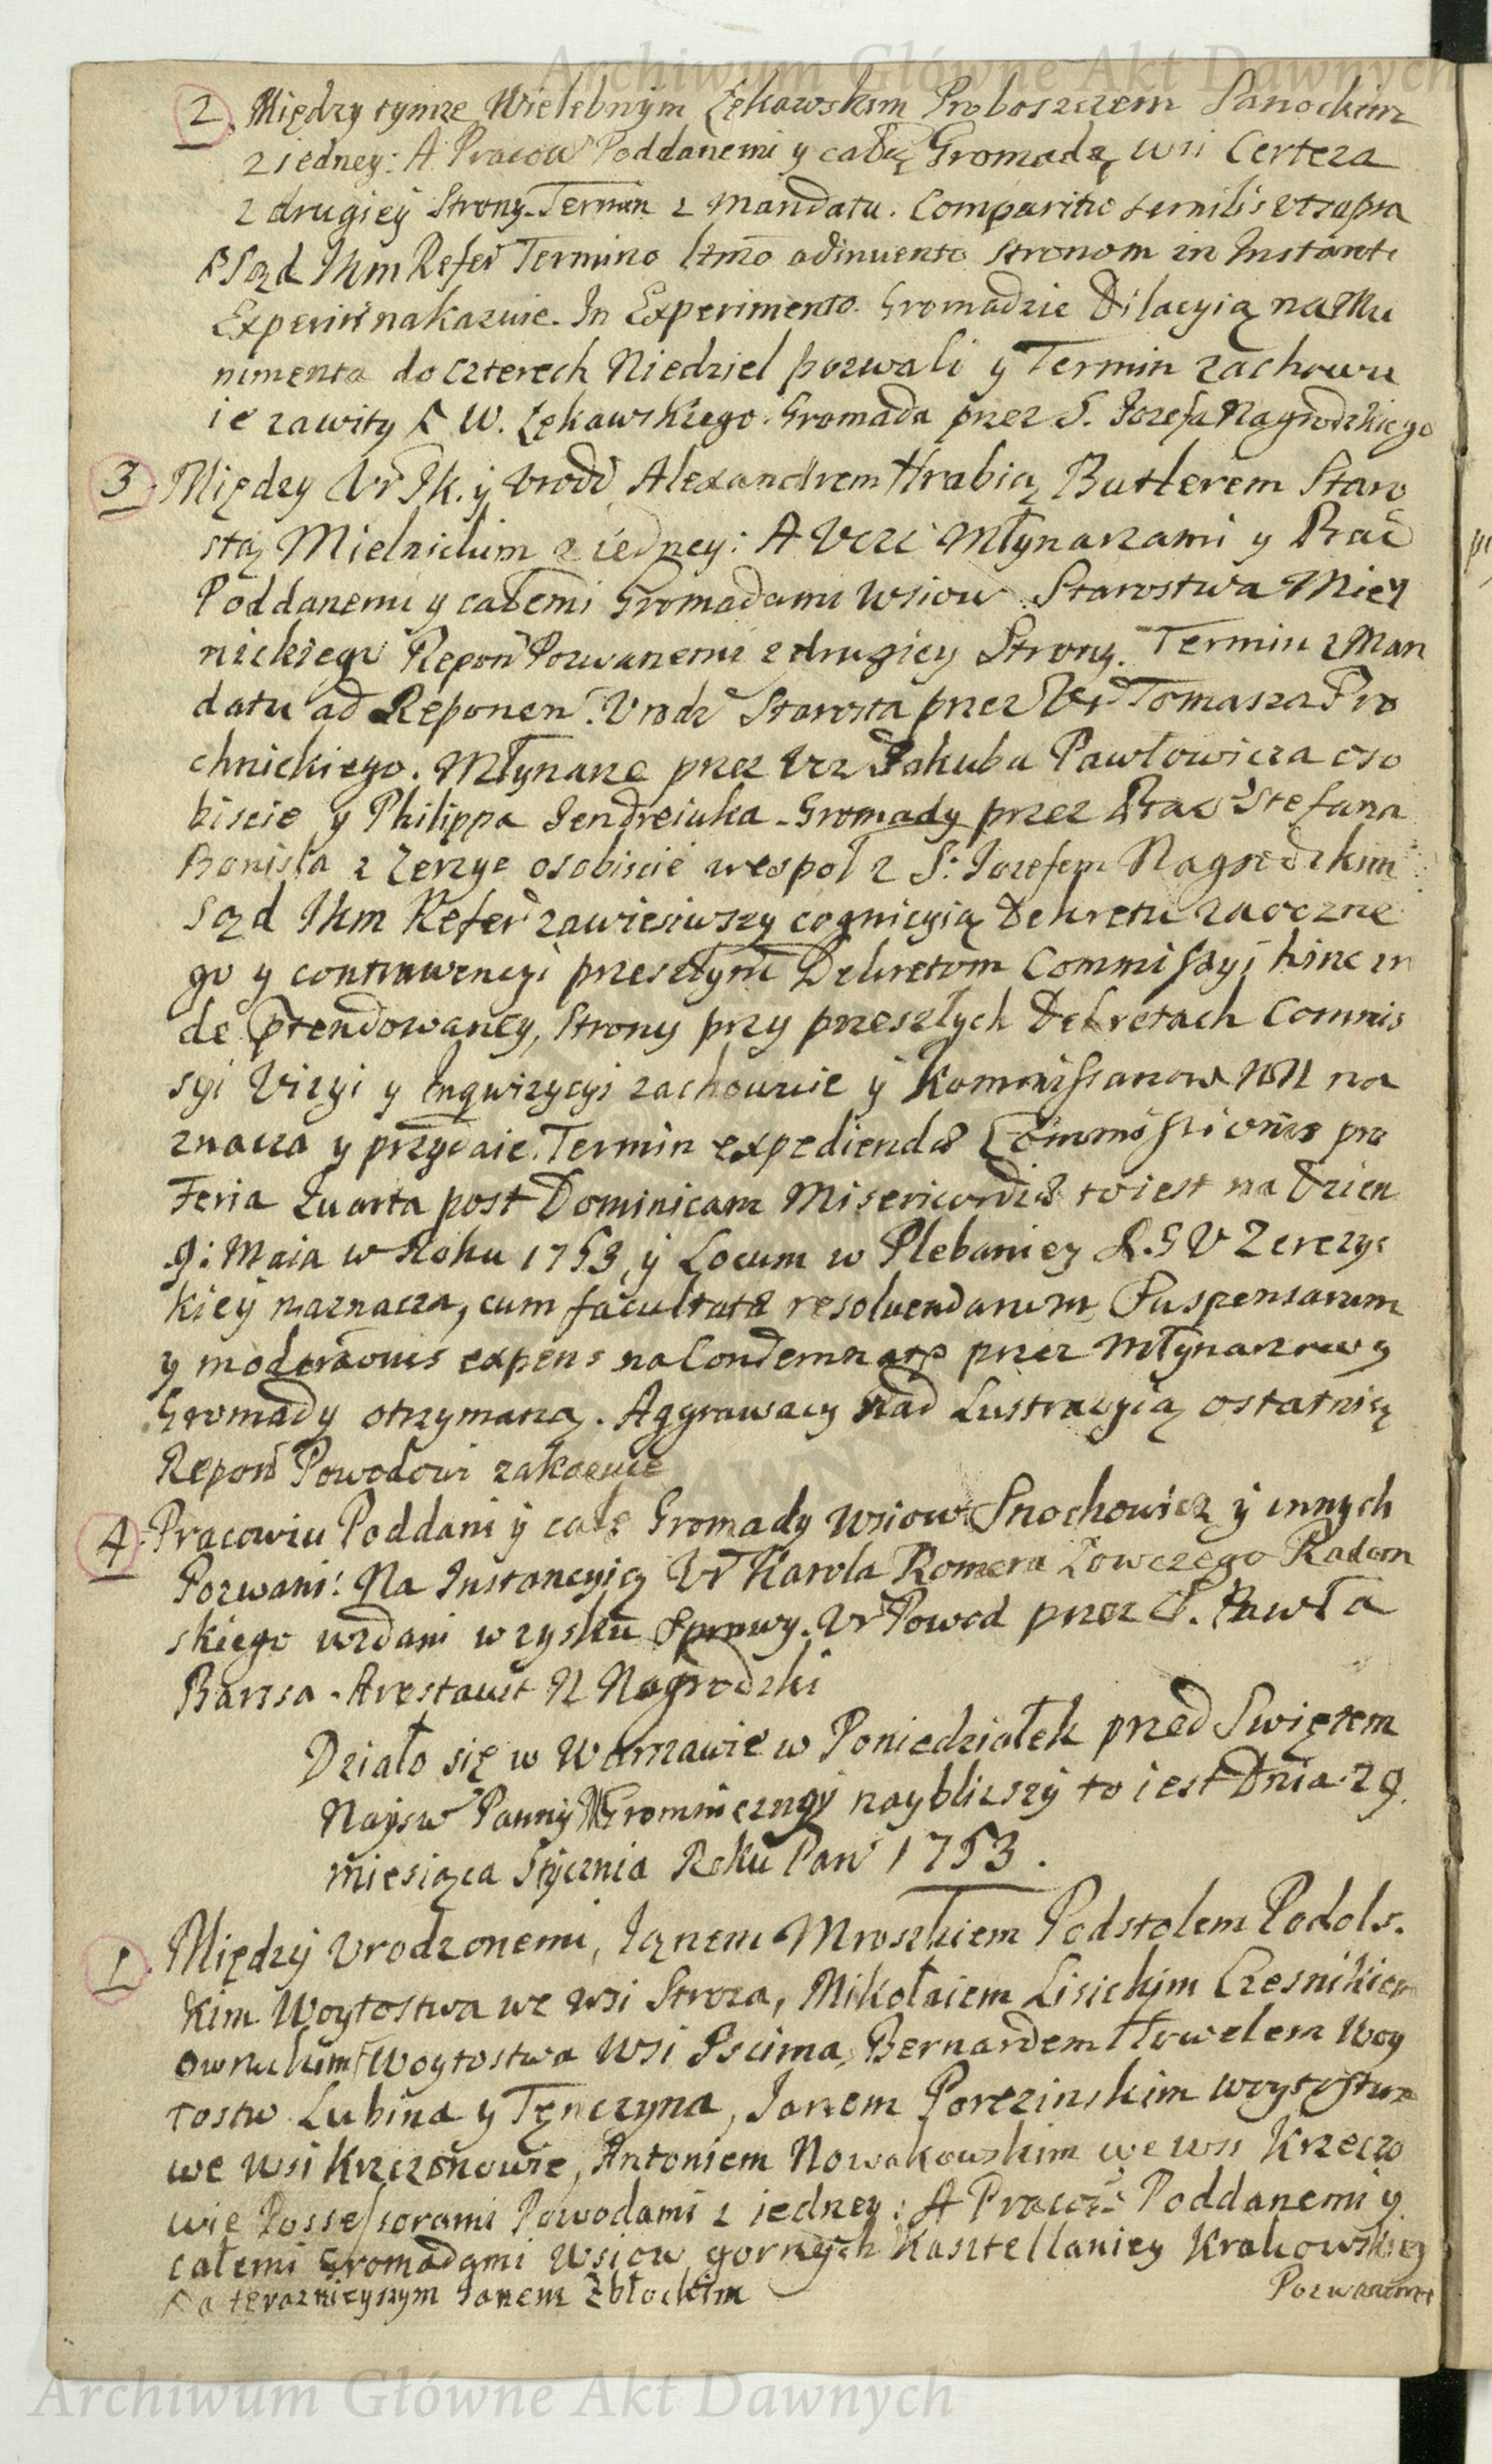 Archiwum Główne Akt Dawnych
2. Między tymze Wielebnym Łękawskim Proboszczem Sanockim
z iedney: A Pracow Poddanemi y całą Gromadą wsi Certeza
z drugiey Strony. Termin z Mandatu. Comparitio similis ut supra
Sąd Jkm Refer Termino ltmo adinvento Stronom in Instanti
Experiri nakazuie. In Experimento Gromadzie Dilacyią na Mu
nimenta do czterech Niedziel pozwali y Termin zachowu
ie zawity W. Łękawskiego. Gromada przez S. Jozefa Nagrodzkiego
3. Między Ur Jk. y Urodz Alexandrem Hrabią Butlerem Staro
stą Mielnickim z iedney: A Ucz Młynarzami y Prac
Poddanemi y całemi Gromadami wsiow Starostwa Miel
nickiego Repon Pozwanemi z drugiey Strony. Termin z Man
datu ad Reponen. Urodz Starosta przez Ur Tomasza Pro
chnickiego. Młynarze przez Ucz Jakuba Pawłowicza oso
biscie y Philippa Jendreiuka. Gromady przez Prac Stefana
Bonisla z Zerzyc osobiscie wespoł z S. Jozefem Nagrodzkim
Sąd Jkm Refer zawiesiwszy cognicyią Dekretu zaoczne
go y contrawencyi przeszłym Dekretom Commissyi hinc in
de ptendowaney, Strony przy przeszłych Dekretach Commis
syi Wizyi y Inqwizycyi zachowuie y Kommissarzow NN na
znacza y przydaie. Termin expediendae Commissionis pro
Feria Quarta post Dominicam Misericordiae to iest na Dzien
9: Maia w Roku 1753, y Locum w Plebaniey R. G U Zerczyc
kiey naznacza, cum facultate resolvendarum Suspensarum
y moderaonis expens na Condemnate przez Młynarzow y
Gromady otrzymaną. Aggrawacy nad Lustracyią ostatnią
Repon Powodowi zakazuie
4. Pracowiu Poddani y całe Gromady wsiow Snochowicz y innych
Pozwani: Na Instancyią Ur Karola Romera Łowczego Radom
skiego wzdani w zysku Sprawy. Ur Powod przez S. Pawła
Barssa. Arestawit N Nagrodzki
Działo się w Warszawie w Poniedziałek przed Swiętem
Nayśw Panny Gromniczney nayblizszy to iest Dnia 29.
miesiąca Stycznia Roku Pan 1753.
1. Między Urodzonemi, Janem Mroszkiem Podstolem Podols.
kim Woytostwa we wsi Stroza, Mikołaiem Lisickim Czesnikiem
Owruckim Woytostwa wsi Pscima, Bernardem Howelem Woy
tostw Lubina y Tęnczyna, Janem Porezinskim Woytostwa
we wsi Krzczonowie, Antoniem Nowakowskim we wsi Krzeczo
wie Possessorami Powodami z iedney: A Pracow Poddanemi y
całemi Gromadami wsiow gornych Kasztellaniey Krakowskiey
a teraznieyszym Janem Zbłockim
Pozwanemi
Archiwum Główne Akt Dawnych